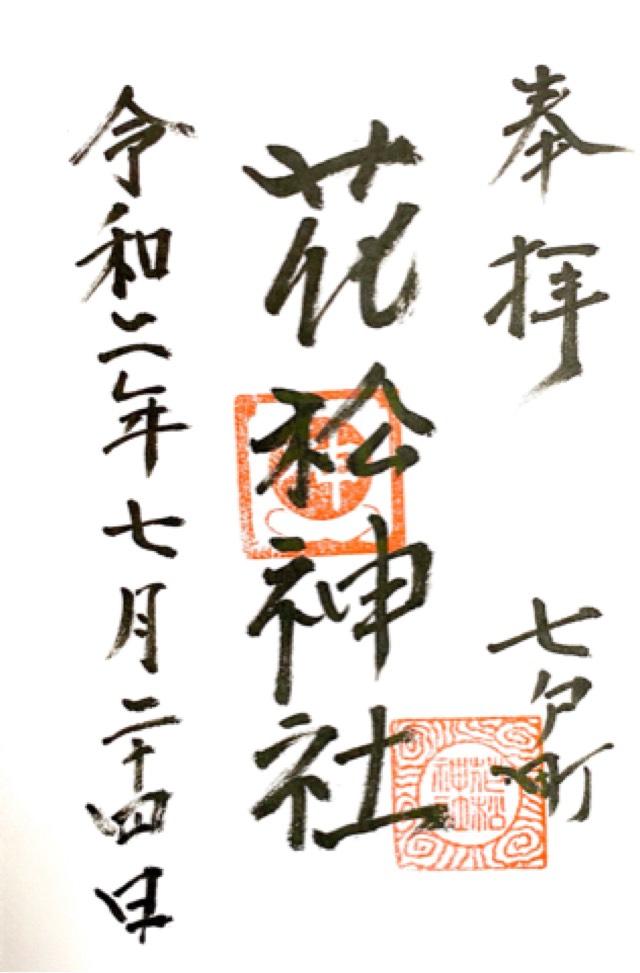 奉拝
七戸町
花松神社
花松
神社
令和二年七月二十四日